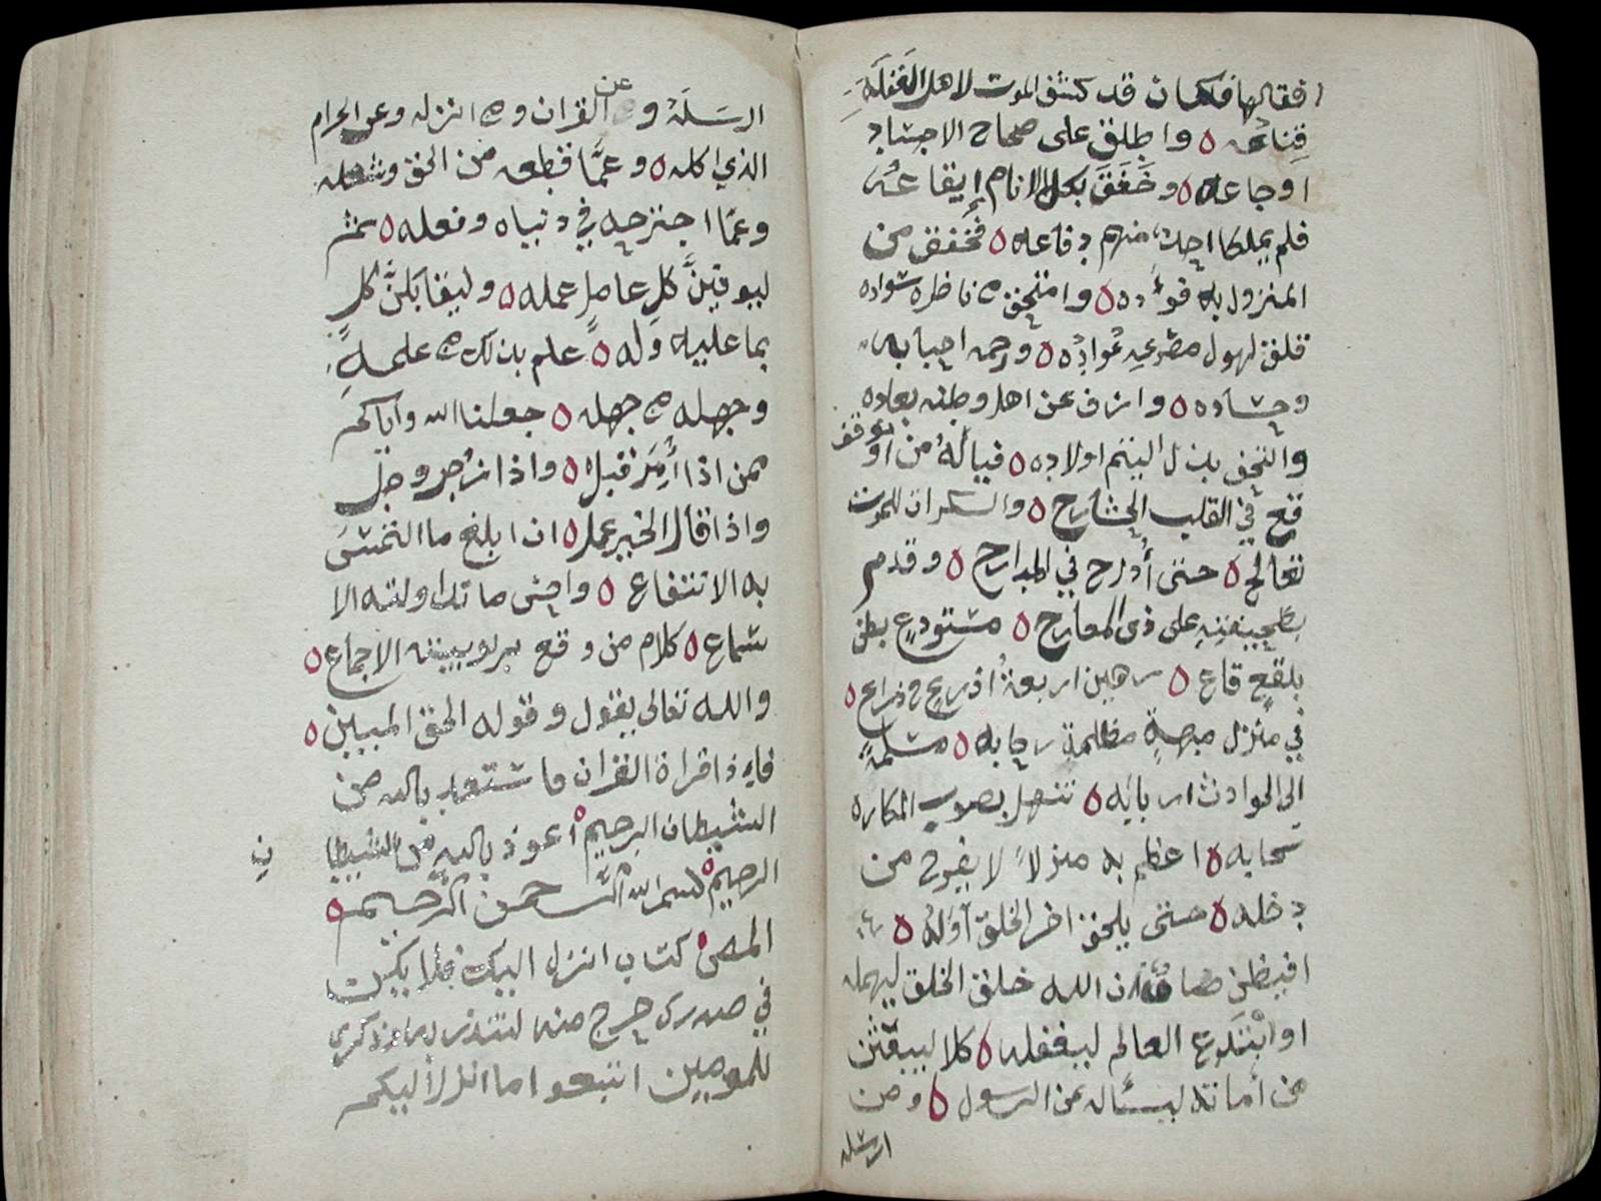 اقفالها فكان قد كشف الموت لاهل الغفلة
قِناعَه ه واطلق على صحاح الاجساد
اوجاعه ه وخَفَقَ بكل الانام إيقاعُه
فلم يملك احدٌ منهم دفاعه ه فخفق من
المنزول به فوءاده ه وامتحق من ناظره سواده
قلق لهول مصرعهِ عُوادُه ه ورحمه احبابه
وحساده ه وازف عن اهله وطنه بعاده
والتحق بذل اليتم اولاده ه فياله من
توقف
قع في القلب الحشارج ه والسكران للموت
تعالج ه حتى أدرج في المدارج ه وقدم
بصحيفته على ذى المعارج ه مستودعٍ بطن
بلقعٍ قاع ه رهين اربعةُ اذرعٍ وذراع ه
في منزل مظلمةٍ رحابه ه مسلمةٍ
الى الحوادث اربابَه ه تنهل بصوب المكاره
سَحابه ه اعظم به منزلاً لا يفوح من
دخله ه حتى يلحق اخر الخلق أوَلُه ه
افيظن ان الله خلق الخلق ليهمله
او ابْتَدع العالم ليغفله ه كلا ليبعَثن
من أماته ليسئاله عن الرسول ه ومن
ارسله
ارسَلهُ وعن القران ومن انزله وعن الحرام
الذي اكله ه وعمَّا قطعه من الحق
وعمّا اجترحه في دنياه وفعله ه ثم
ليوفينَّ كل عاملٍ عمله ه وليقابَلَنَّ كلٍ
بما عليه وَله ه علم بذلك من علمهِ
وجهله من جهله ه جعلنا الله واياكم
ممن اذا أُمِرَ قبل ه واذا زُجر وجل
واذا قال الخير عمل ه ان ابلغ ما التمسَ
به الانتفاع ه واحسن ما تداولته الا
سماع ه كلام من وقع بربوبيته الاجماع ه
والله تعالى يقول وقوله الحق المبين ه
فاءذا قراة القران فاستعذ بالله من
الشيطان الرجيم ه اعوذ بالله من الشيطا
ن
الرجيم ه بسم الله الرحمن الرحيم ه
المص ه كتاب انزل اليك فلا يكن
في صدرك حرج منه لتنذر به وذكرى
للمومنين اتبعوا ما انزل أليكم